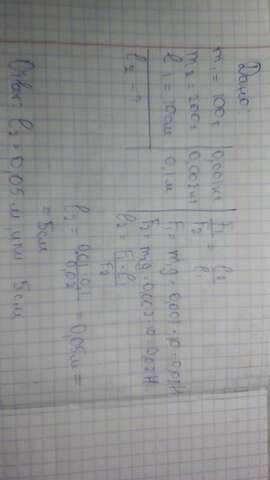 Дано:
m1 = 100г 0,001кг
m2 = 200г 0,002кг
l1 = 10см 0,1м
l2 - ?
F1/F2 = l2/l1
F1 = mg = 0,001 · 10 = 0,01Н
F2 = mg = 0,002 · 10 = 0,02Н
l2 = F1 · l1 / F2
l2 = 0,01 · 0,1 / 0,02 = 0,05м =
= 5см
Ответ: l2 = 0,05 м, или 5см